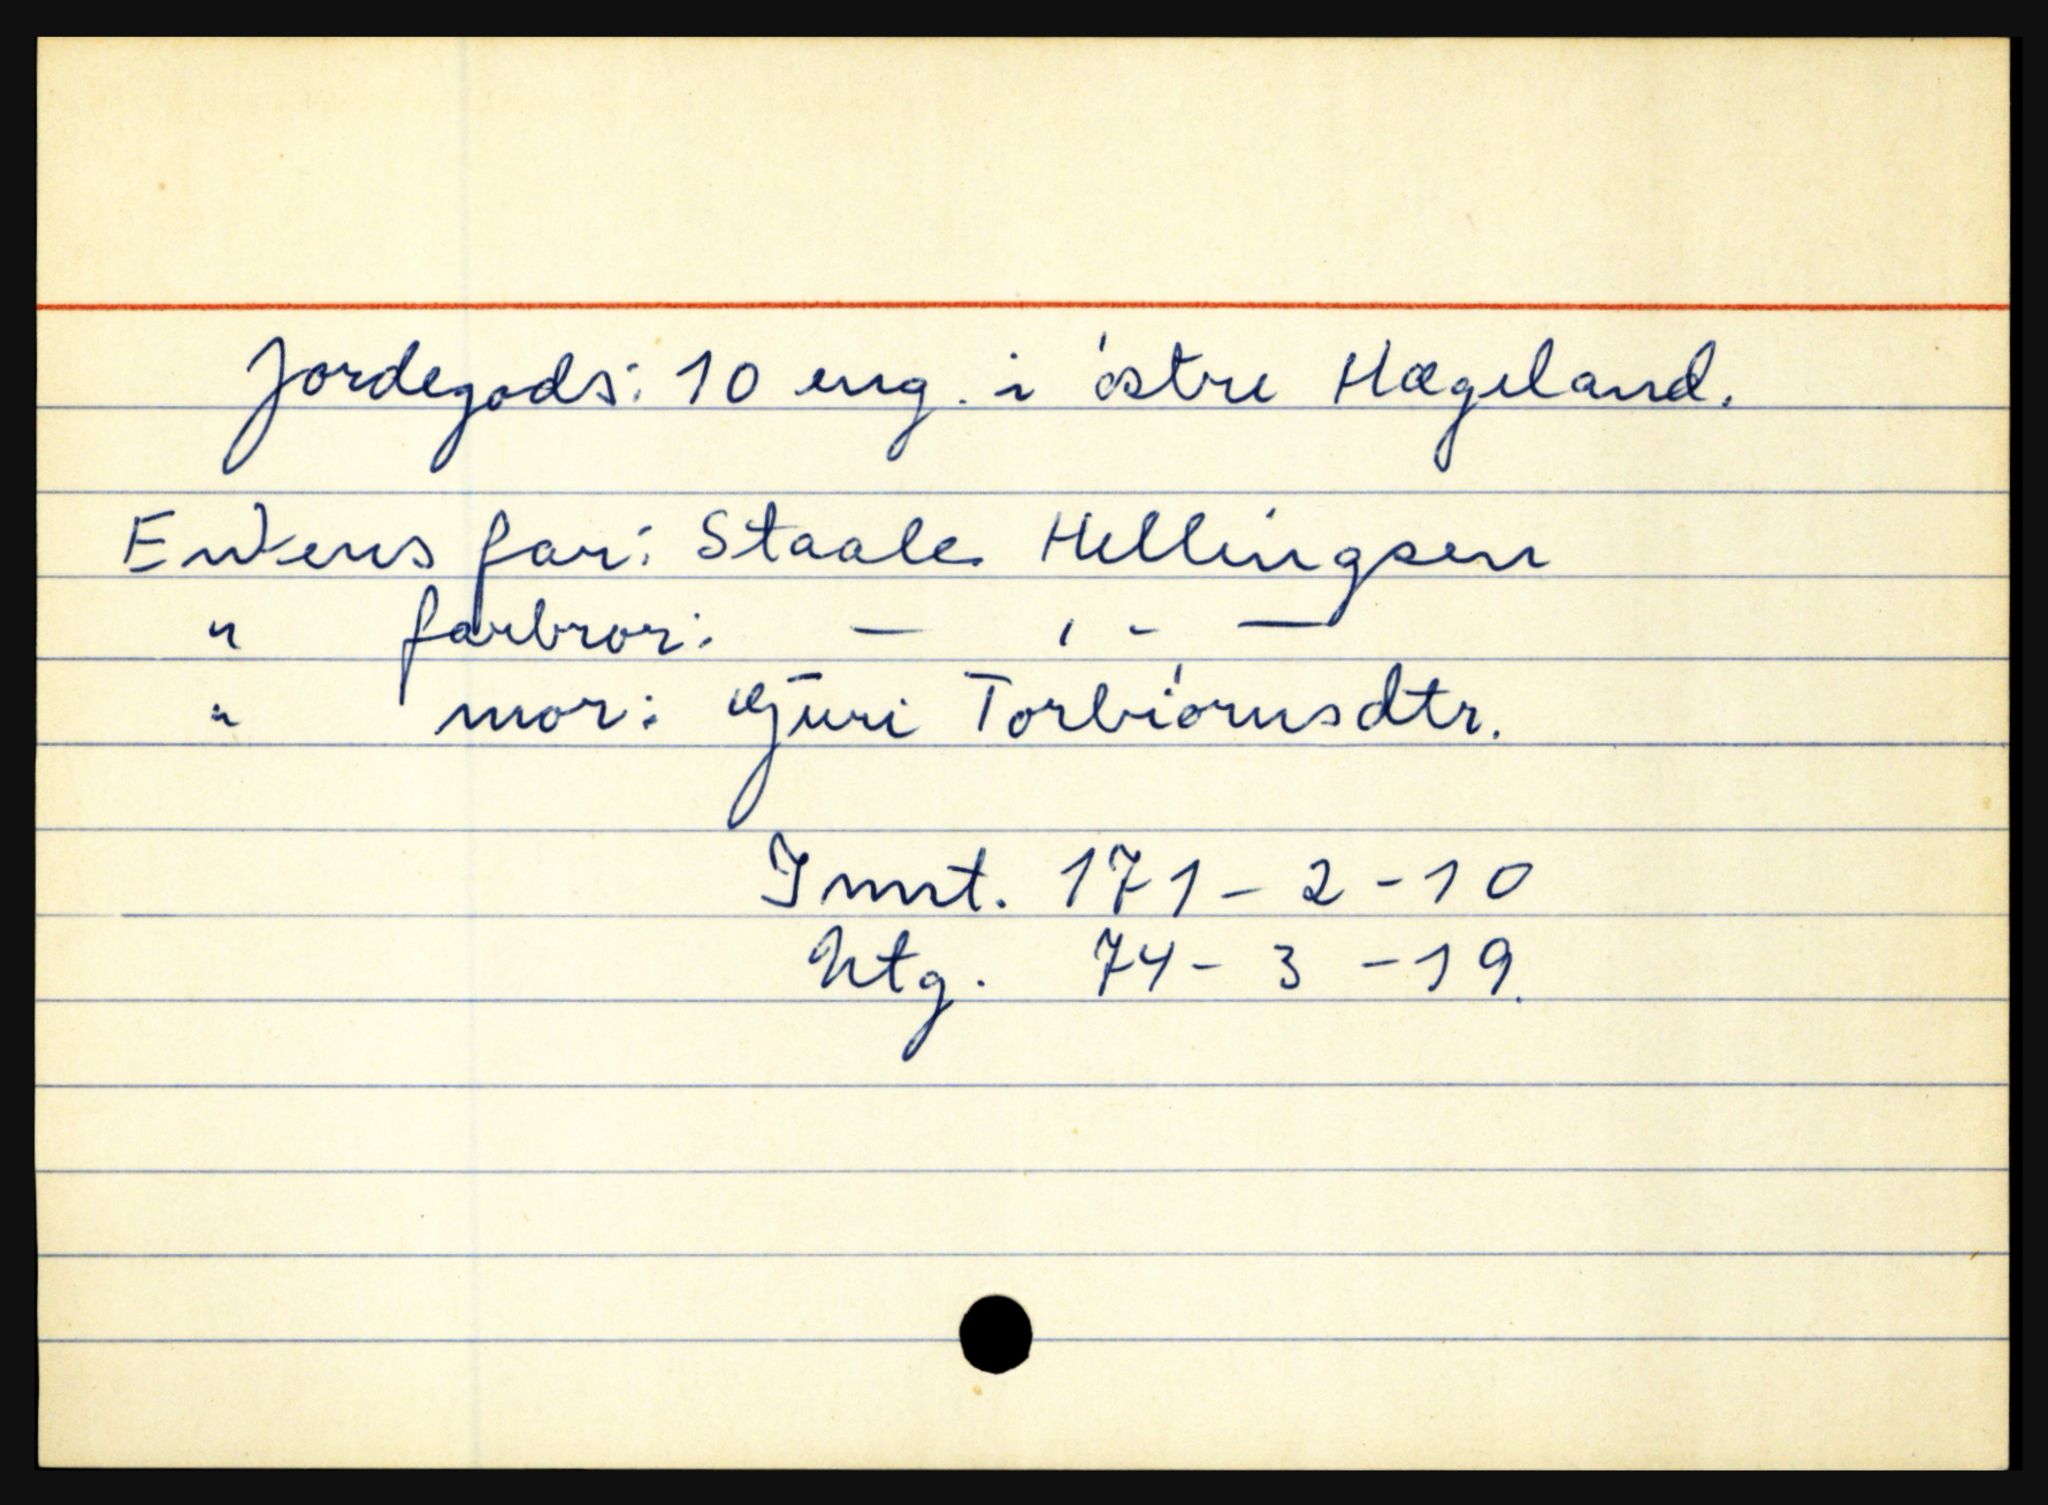 Jordegods: 10 eng. i östre Hægeland.
Enkens far: Staale Hellingsen
" farbror: — , - —
" mor: Gjuri Torbiörnsdtr.
Innt. 171 - 2 - 10
Utg. 74 - 3 - 19.